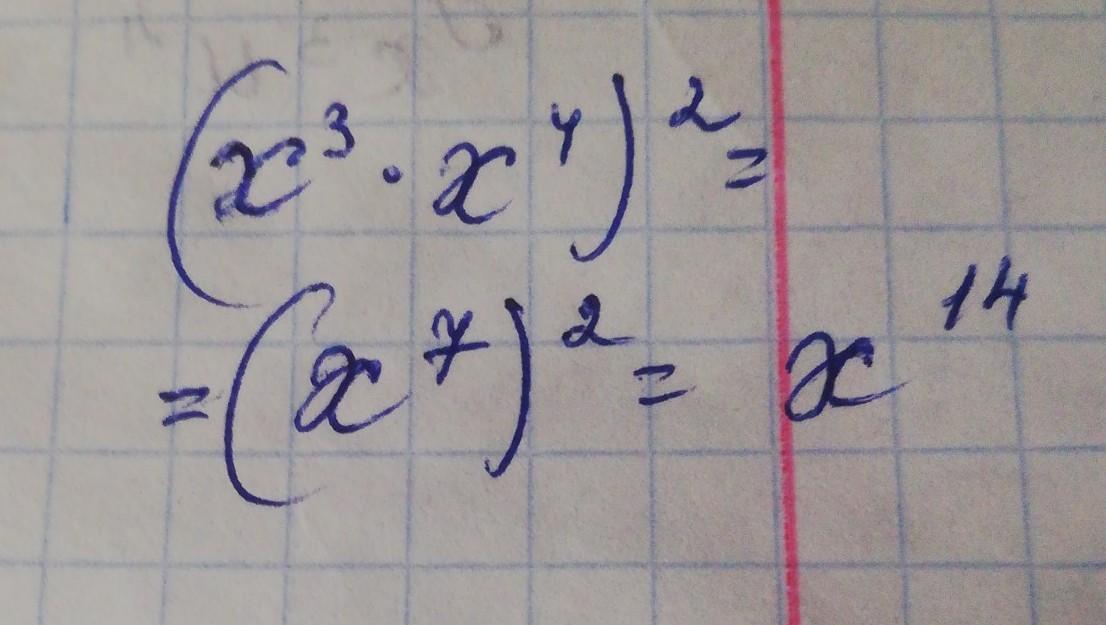 (x³ · x⁴)² =
= (x⁷)² = x¹⁴